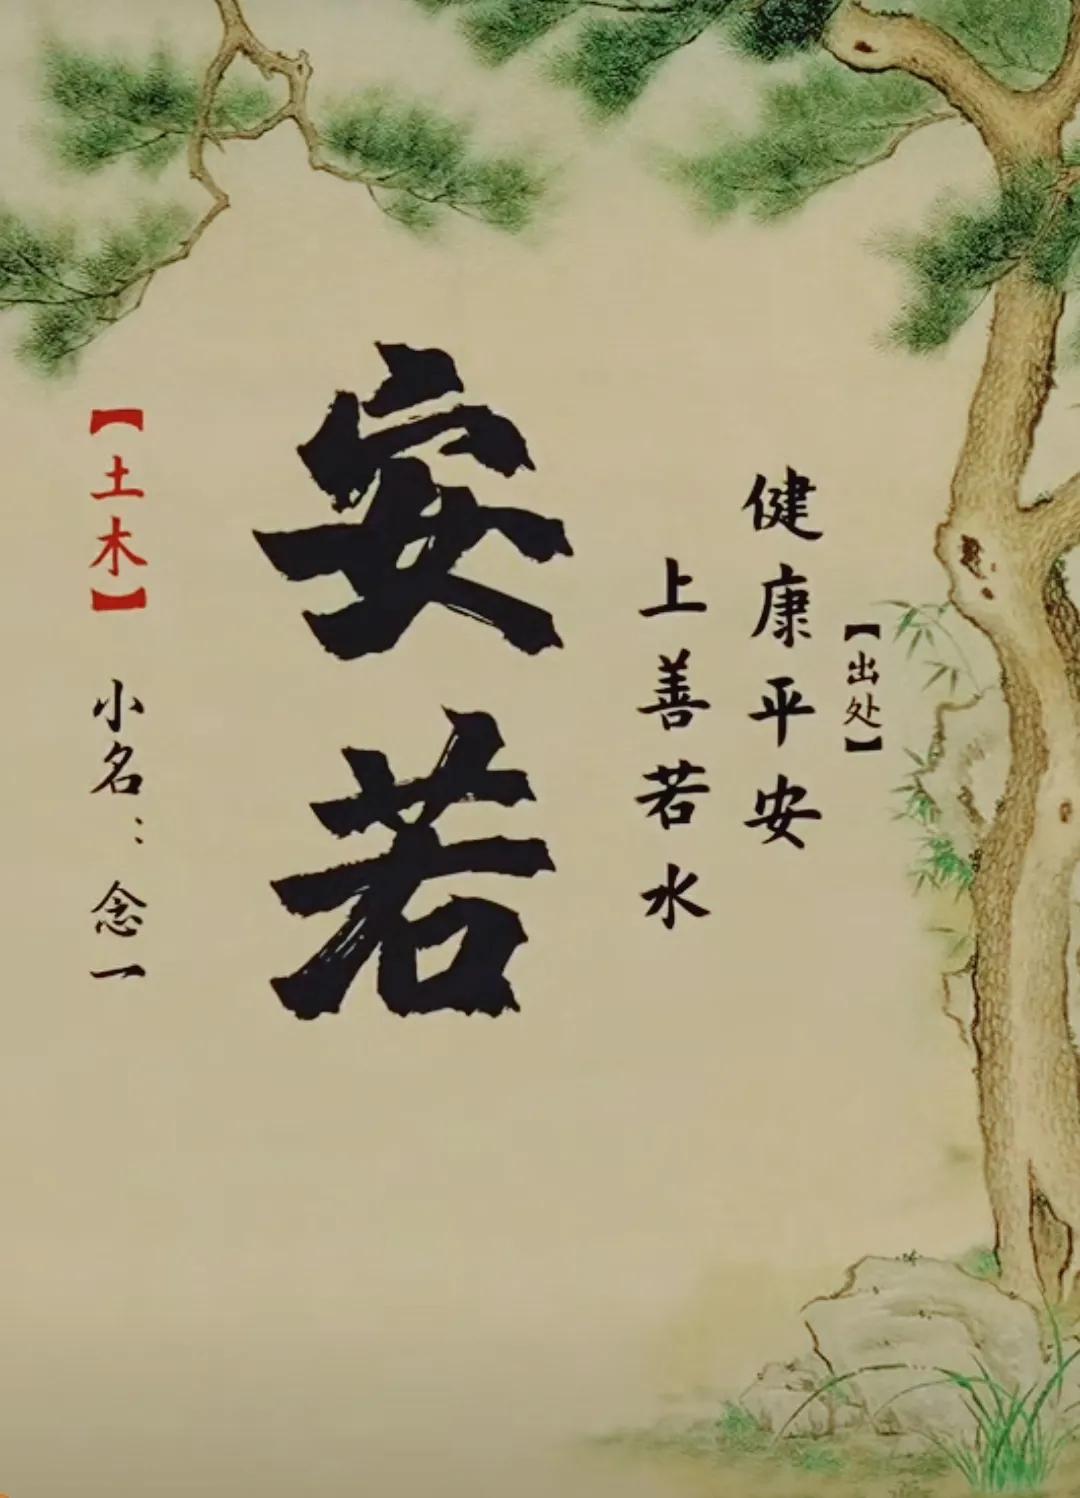 【出处】
健康平安
上善若水
安若
【土木】 小名：念一